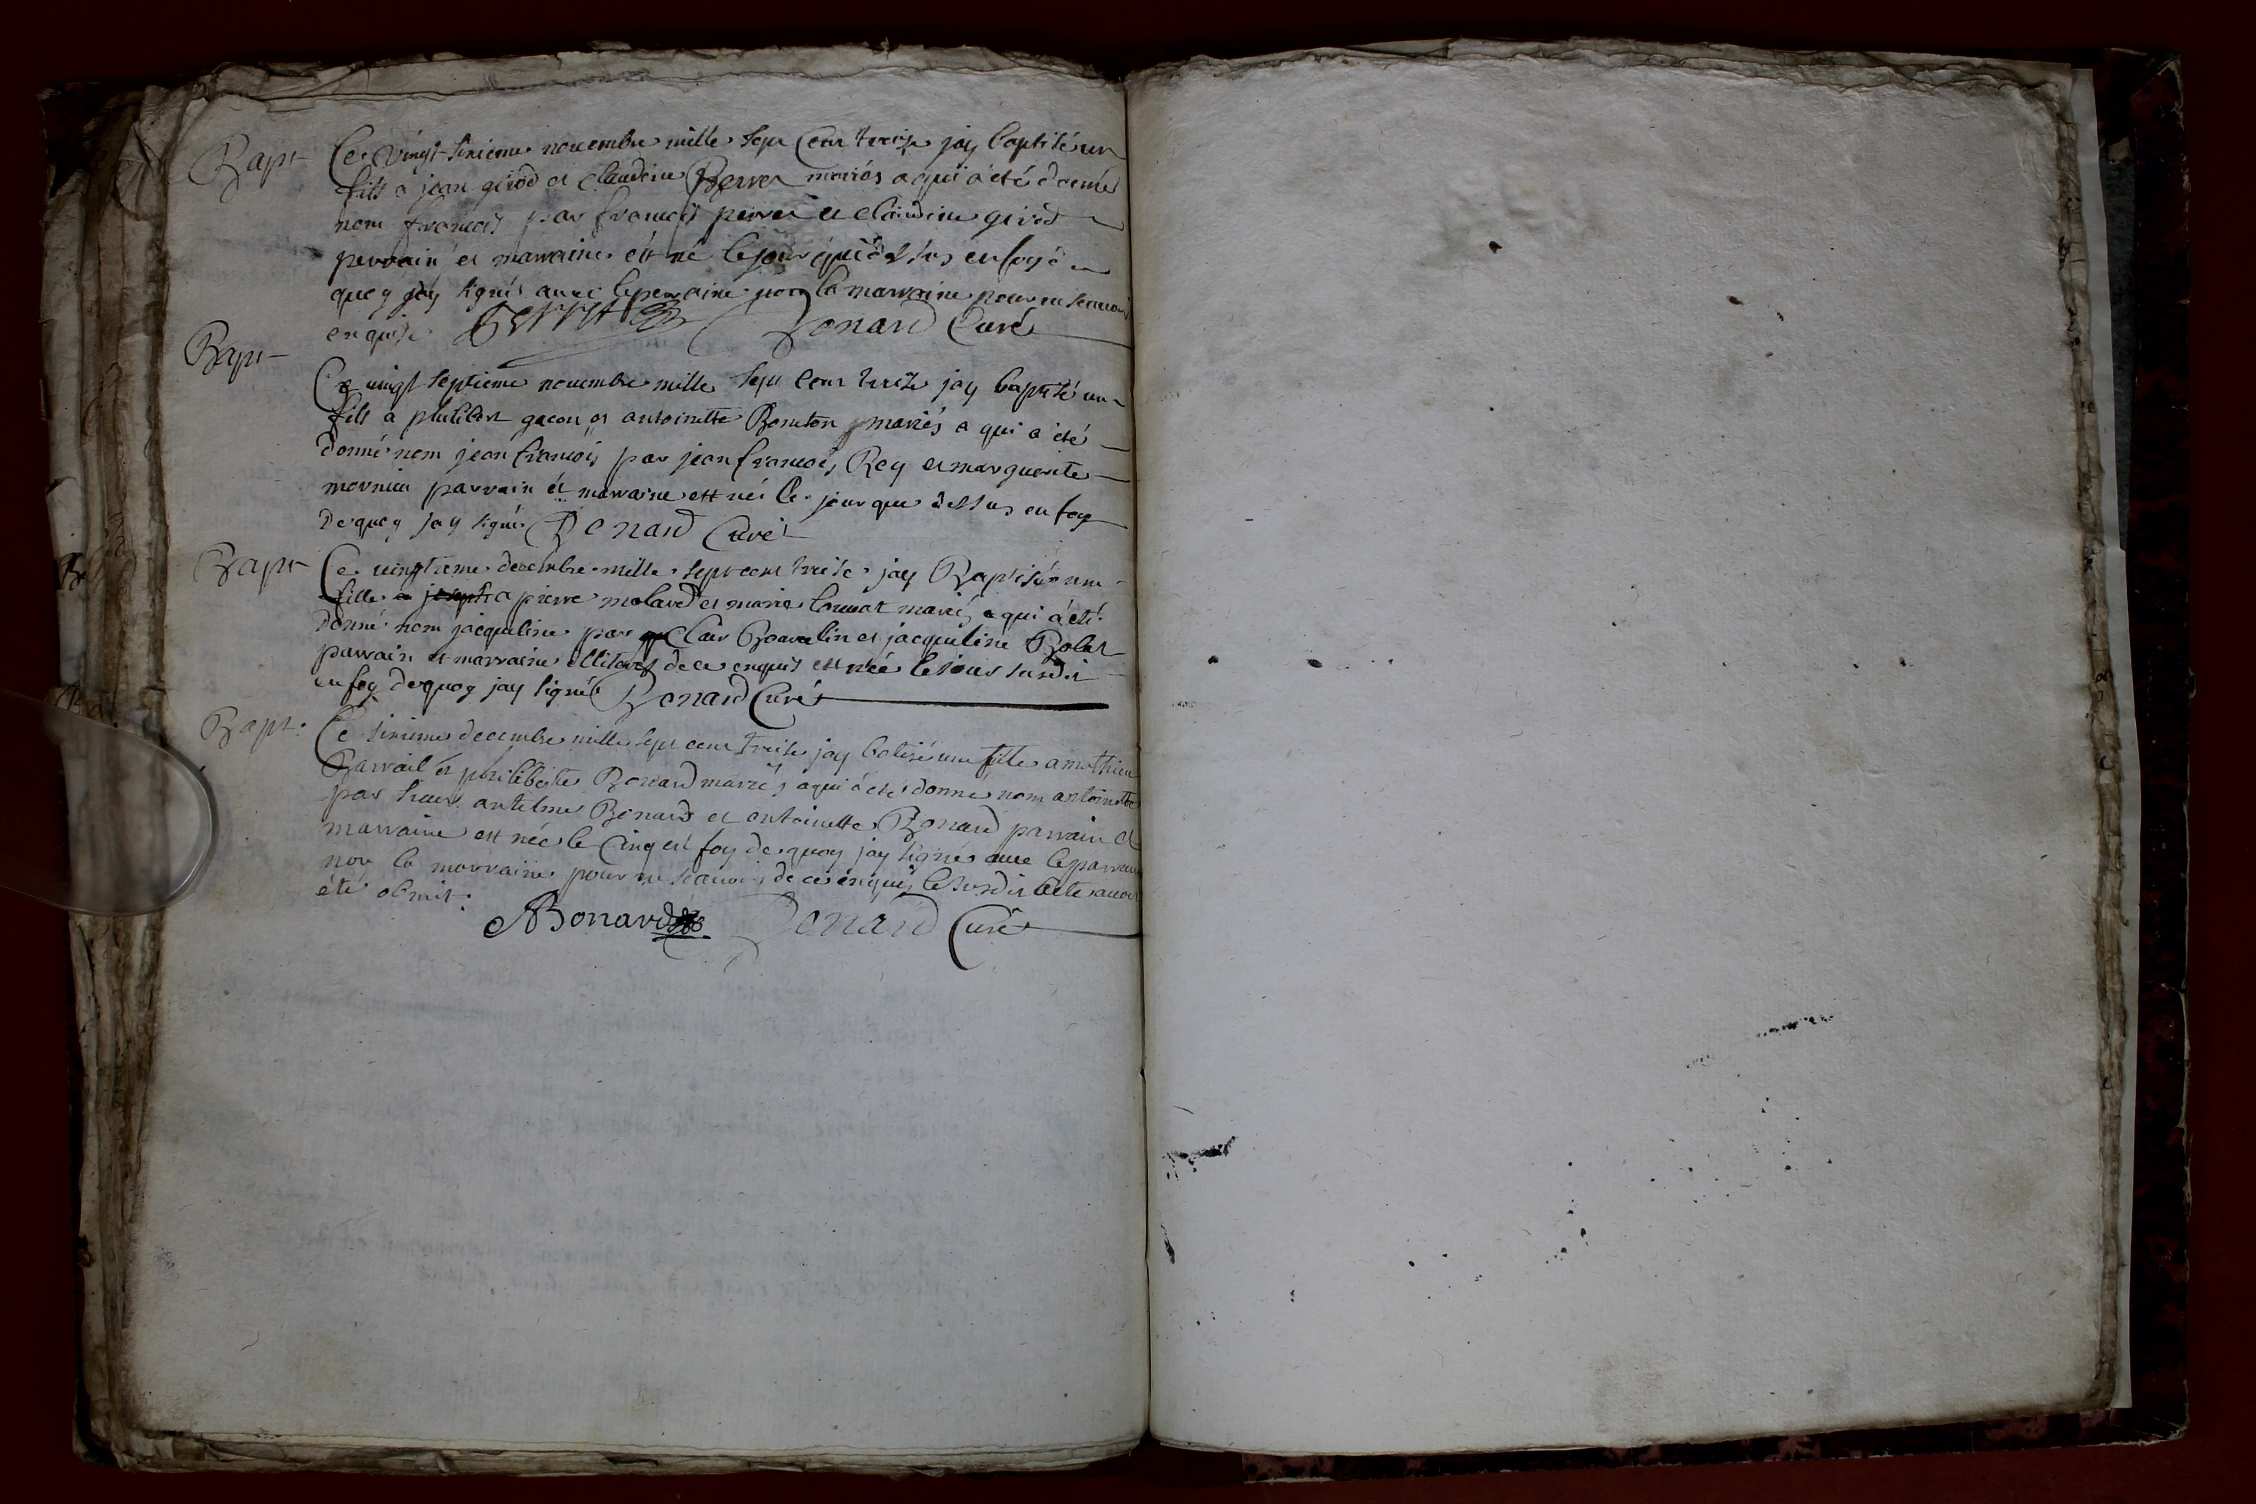 Bapt
Ce vingt sixieme novembre mille sept cent treize jay baptisé un
fils a jean girod et claudine Perret mariés a qui a été donné
nom francois par francois perret et claudine girod
parrain et marraine est né le jour que dessus en foy de
quoy jay signé avec le parrain non la marraine pour ne scavoir
enquise Perret Bonard Curé
Bapt
Ce vingt septieme novembre mille sept cent treize jay baptisé un
fils a philibert gacon et antoinette Bonreton mariés a qui a été
donné nom jean francois par jean francois Rey et marguerite
mornieu parrain et marraine est né le jour que dessus en foy
de quoy jay signé Bonard Curé
Bapt
Ce vingtieme decembre mille sept cent treise jay Baptisé une
fille a joseph a pierre molard et marie mariés a qui a été
donné nom jacqueline par clair Bovalin et jacqueline Bolet
parrain et marraine illiterés de ce enquis est née le jour susdit
en foy de quoy jay signé Bonard Curé
Bapt.
Ce sixieme decembre mille sept cent treise jay batisé une fille a mathieu
Barrail et philiberte Bonard mariés a qui a été donné nom antoinette
par sieur antelme Bonard et antoinette Bonard parrain et
marraine est née le Cinq en foy de quoy jay signé avec le parrain
non la marraine pour ne scavoir de ce enquis le susdit acte ayant
été obmit.
ABonard Bonard Curé